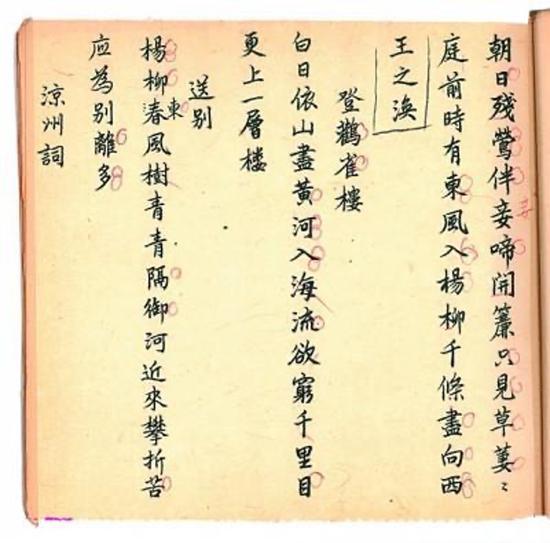 朝日殘鶯伴妾啼開簾只見草萋〻
庭前時有東風入楊柳千條盡向西
王之渙
登鸛雀樓
白日依山盡黃河入海流欲窮千里目
更上一層楼
送别
東
楊柳春風樹青青隔御河近來攀折苦
应為别離多
涼州詞